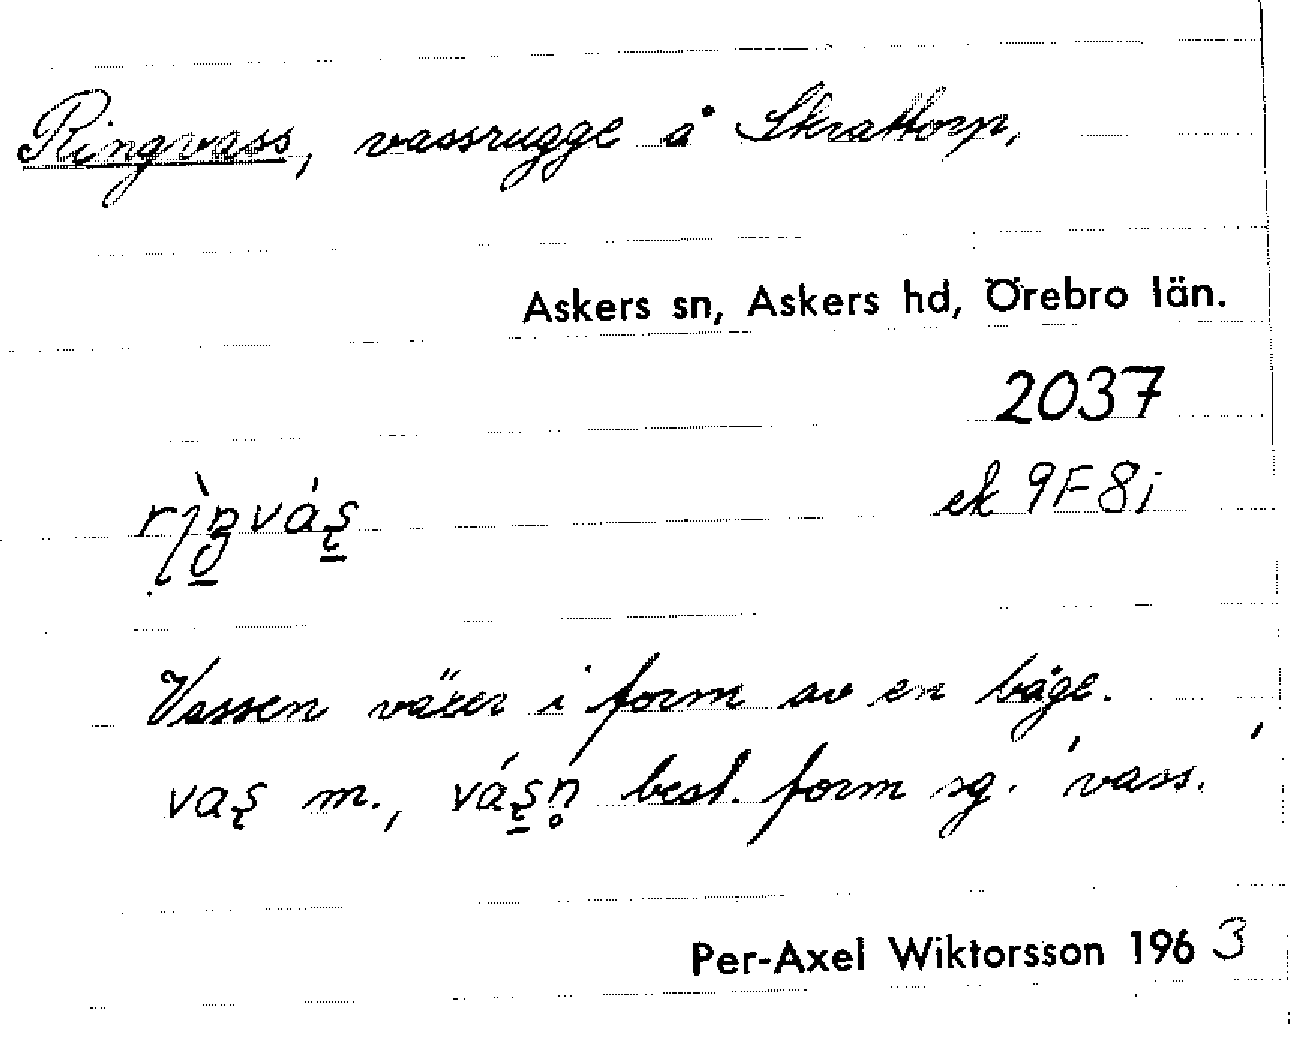 Ringvass, vassrugge å Skrattorp,
Askers sn, Askers hd, Örebro län.
2037
ek 9F8i
Vassen växer i form av en båge.
vas m., best. form sg. 'vass.'
Per-Axel Wiktorsson 1963